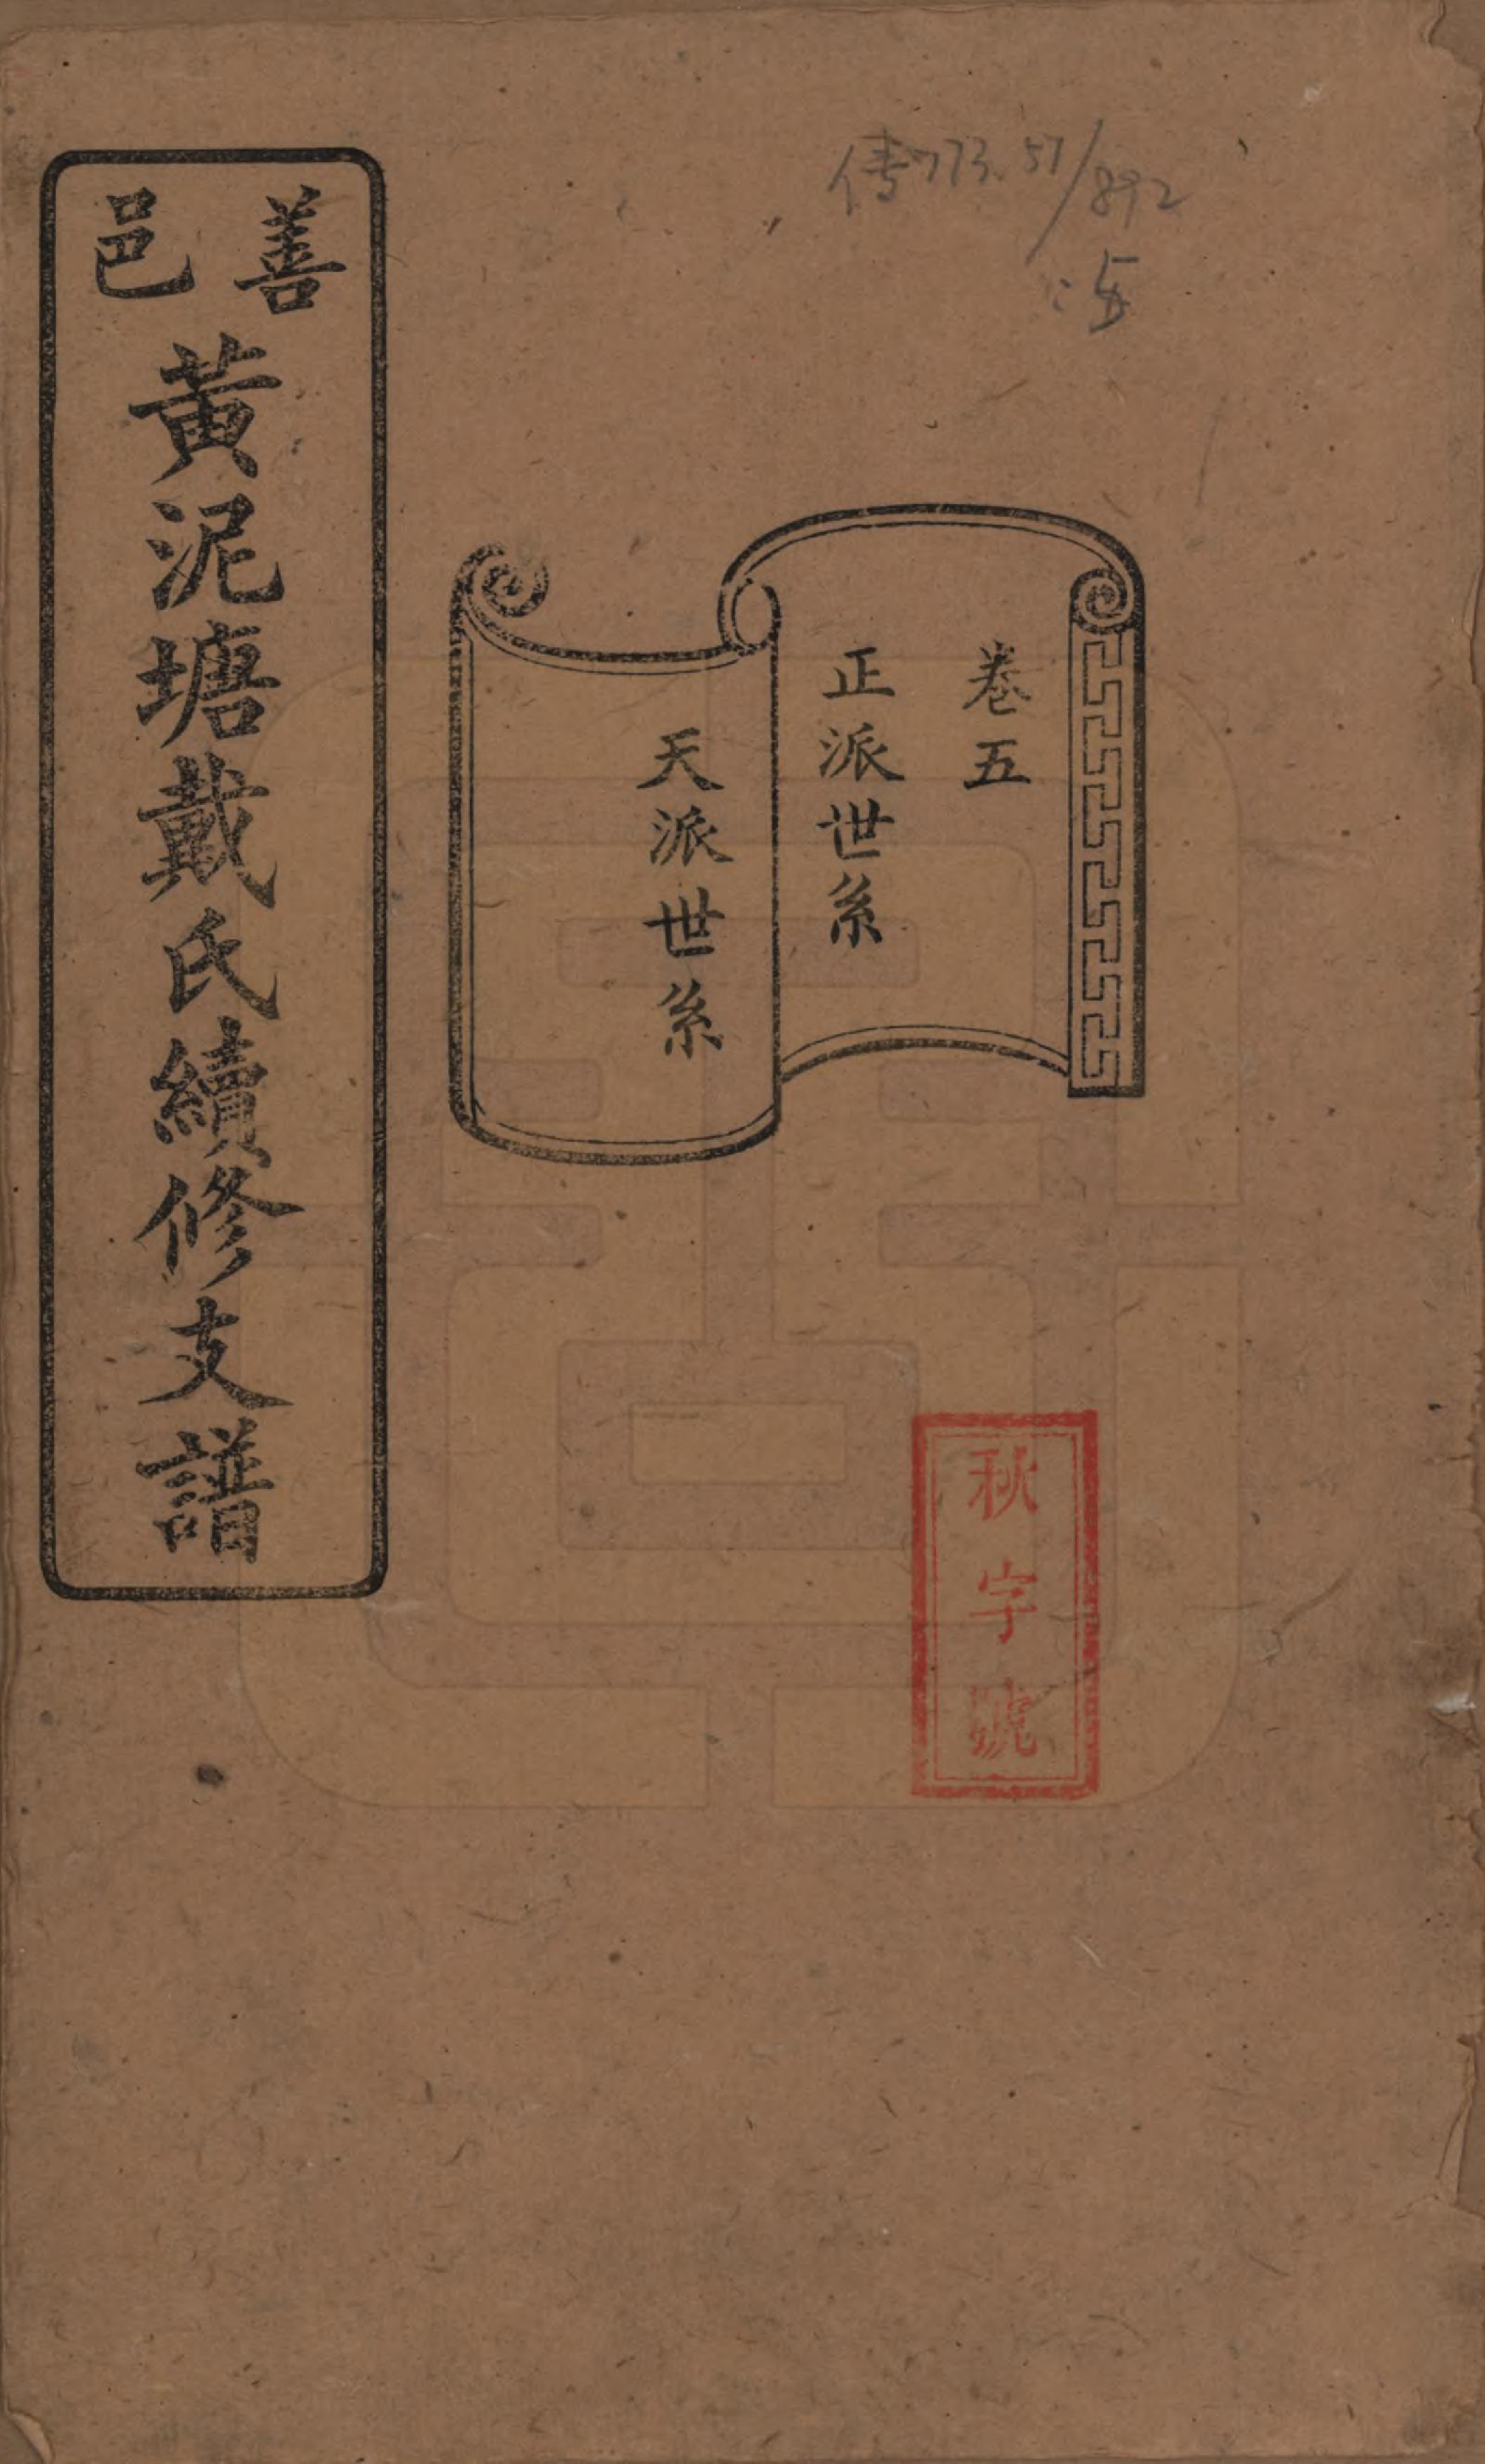 善邑
黃泥塘戴氏續修支譜
卷五
正派世系
天派世系
秋字號
傳773.57/892
:5